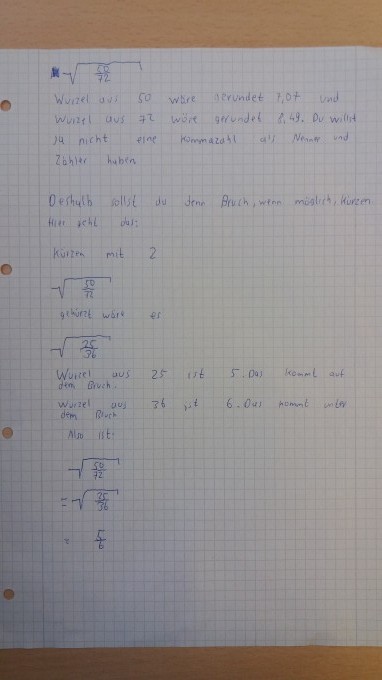 √50/72
Wurzel aus 50 wäre gerundet 7,07 und
Wurzel aus 72 wäre gerundet 8,49. Du willst
ja nicht eine Kommazahl als Nenner und
Zähler haben
Deshalb sollst du denn Bruch, wenn möglich, kürzen
Hier geht das:
Kürzen mit 2
√50/72
gekürzt wäre es
√25/36
Wurzel aus 25 ist 5. Das kommt auf
dem Bruch.
Wurzel aus 36 ist 6. Das kommt unter
dem Bruch
Also ist:
√50/72
= √25/36
= 5/6